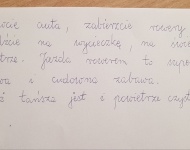 cie auta, zabierzcie rowery
dźcie na wycieczkę, na świe
trze. Jazda rowerem to supe
wa i cudowna zabawa.
ż tańsza jest i powietrze czyst